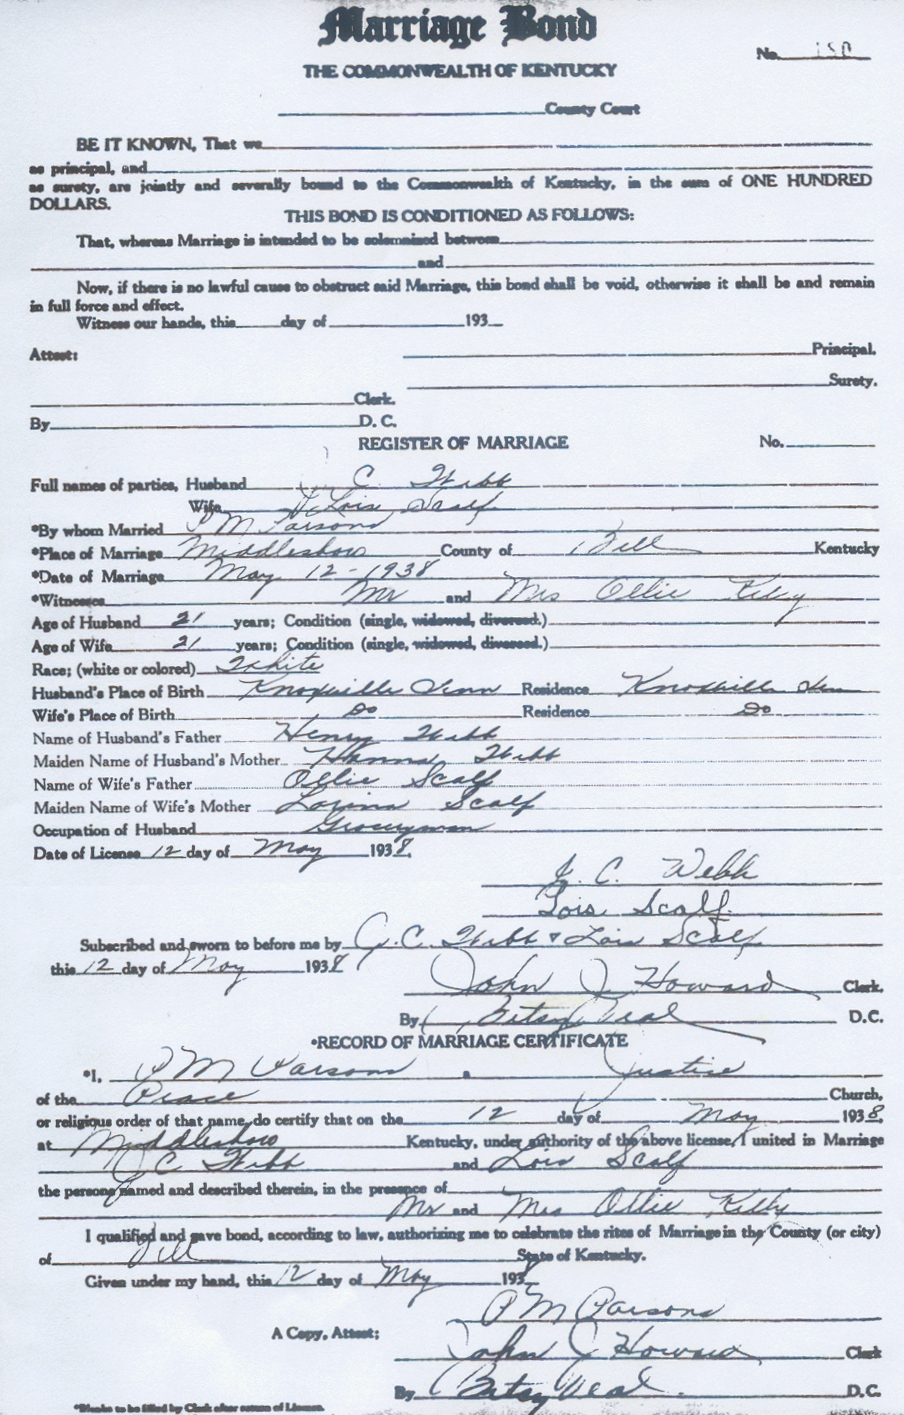 Marriage Bond
No. 150
THE COMMONWEALTH OF KENTUCKY
County Court
BE IT KNOWN, That we
as principal, and
as surety, are jointly and severally bound to the Commonwealth of Kentucky, in the sum of ONE HUNDRED
DOLLARS.
THIS BOND IS CONDITIONED AS FOLLOWS:
That, whereas Marriage is intended to be solemnized between
and
Now, if there is no lawful cause to obstruct said Marriage, this bond shall be void, otherwise it shall be and remain
in full force and effect.
Witness our hands, this day of 193
Attest: Principal.
Surety.
Clerk.
By D. C.
REGISTER OF MARRIAGE No.
Full names of parties, Husband J. C. Webb
Wife Lois Scalf
*By whom Married P M Parsons
*Place of Marriage Middlesboro County of Bell Kentucky
*Date of Marriage May 12-1938
*Witnesses Mr and Mrs Ollie Kilby
Age of Husband 21 years; Condition (single, widowed, divorced.)
Age of Wife 21 years; Condition (single, widowed, divorced.)
Race; (white or colored) White
Husband's Place of Birth Knoxville Tenn Residence Knoxville Ten
Wife's Place of Birth Do Residence Do
Name of Husband's Father Henry Webb
Maiden Name of Husband's Mother Hanna Webb
Name of Wife's Father Ollie Scalf
Maiden Name of Wife's Mother Lorina Scalf
Occupation of Husband Groceryman
Date of License 12 day of May 1938.
J. C. Webb
Lois Scalf.
Subscribed and sworn to before me by J.C. Webb & Lois Scalf
this 12 day of May 1938
John J. Howard Clerk.
By Betsy Veal D.C.
*RECORD OF MARRIAGE CERTIFICATE
*I, P M Parsons a Justice
of the Peace Church,
or religious order of that name, do certify that on the 12 day of May 1938.
at Middlesboro Kentucky, under authority of the above license, I united in Marriage
J C Webb and Lois Scalf
the persons named and described therein, in the presence of
Mr and Mrs Ollie Kilby
I qualified and gave bond, according to law, authorizing me to celebrate the rites of Marriage in the County (or city)
of Bell State of Kentucky.
Given under my hand, this 12 day of May 1938
P M Parsons
A Copy, Attest: John J Howard Clerk
By Betsy Veal. D.C.
*Blanks to be filled by Clerk after return of License.